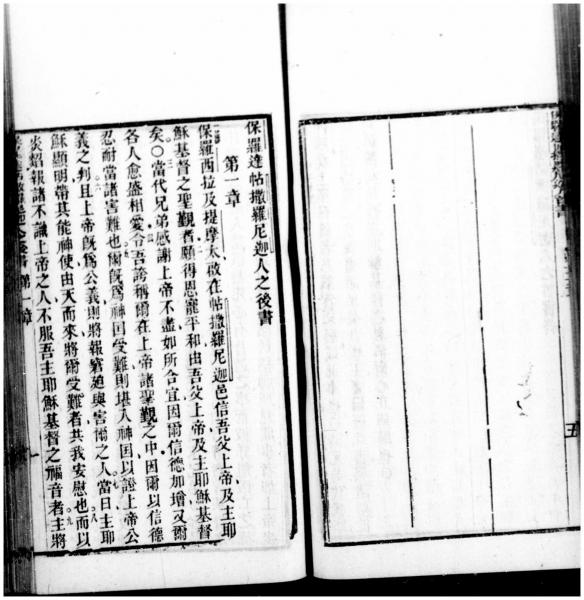 保羅達帖撒羅尼迦人之後書
第一章
保羅西拉及提摩太啟在帖撒羅尼迦邑信吾父上帝及主耶
穌基督之聖觐者願得恩寵平和由吾父上帝及主耶穌基督
矣〇當代兄弟感謝上帝不盡如所合宜因爾信德加增又爾
各人愈盛相愛令吾誇稱爾在上帝諸聖觐之中因爾以信德
忍耐當諸害難也爾既爲神国受難則堪入神国以證上帝公
義之判且上帝既爲公義則將報窘迫與害爾之人當日主耶
穌顯明帶其能神使由天而來將爾受難者共我安慰也而以
炎焰報諸不識上帝之人不服吾主耶穌基督之福音者主將
後書 第一章
一
五